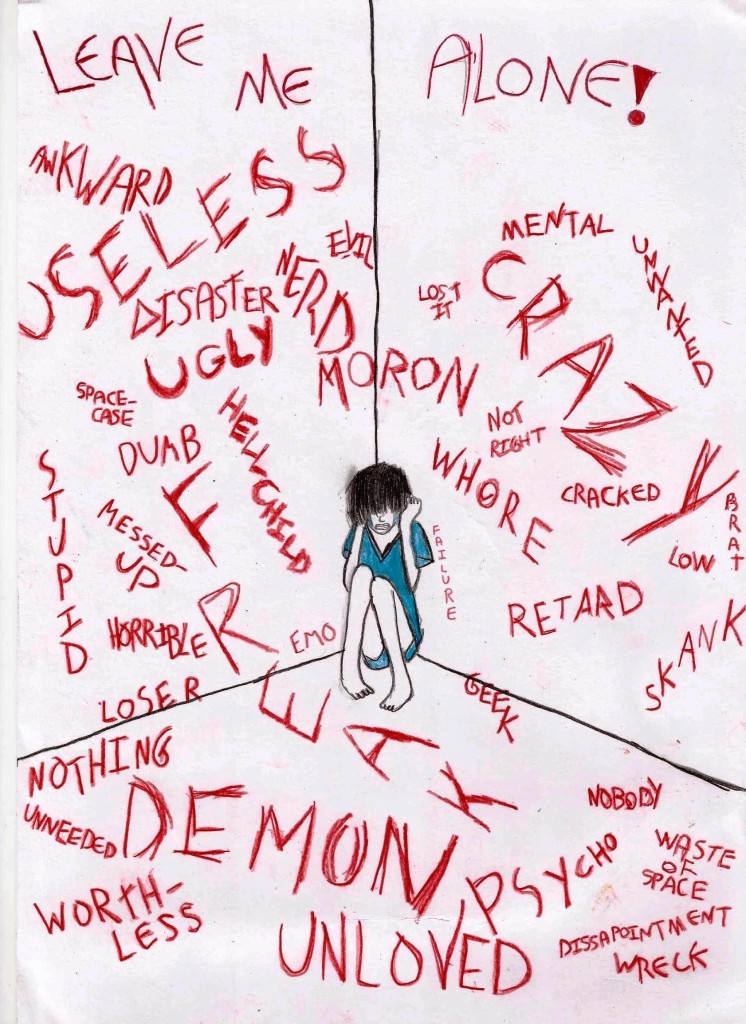 LEAVE
ME
ALONE!
AWKWARD
USELESS
EVIL
MENTAL
UNWANTED
DISASTER
NERD
LOST
IT
CRAZY
UGLY
MORON
SPACE-
CASE
HELL CHILD
NOT
RIGHT
DUMB
WHORE
STUPID
FREAK
CRACKED
BRAT
MESSED-
UP
FAILURE
LOW
HORRIBLE
EMO
RETARD
SKANK
LOSER
GEEK
NOTHING
DEMON
NOBODY
UNNEEDED
PSYCHO
WASTE
OF
SPACE
WORTH-
LESS
UNLOVED
DISSAPOINTMENT
WRECK